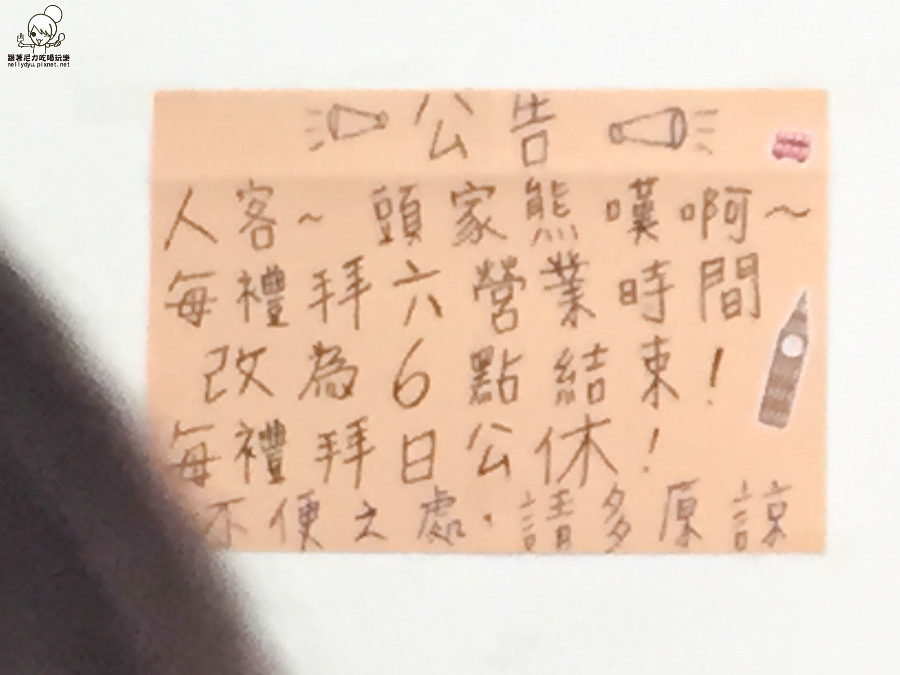 跟著尼力吃喝玩樂
nellydyu.pixnet.net
公告
人客~ 頭家熊嘆啊~
每禮拜六營業時間
改為6點結束!
每禮拜日公休!
不便之處,請多原諒